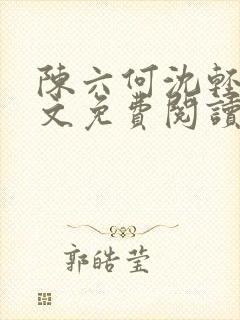 陳六何沈輕
文免費閱讀
郭皓莹